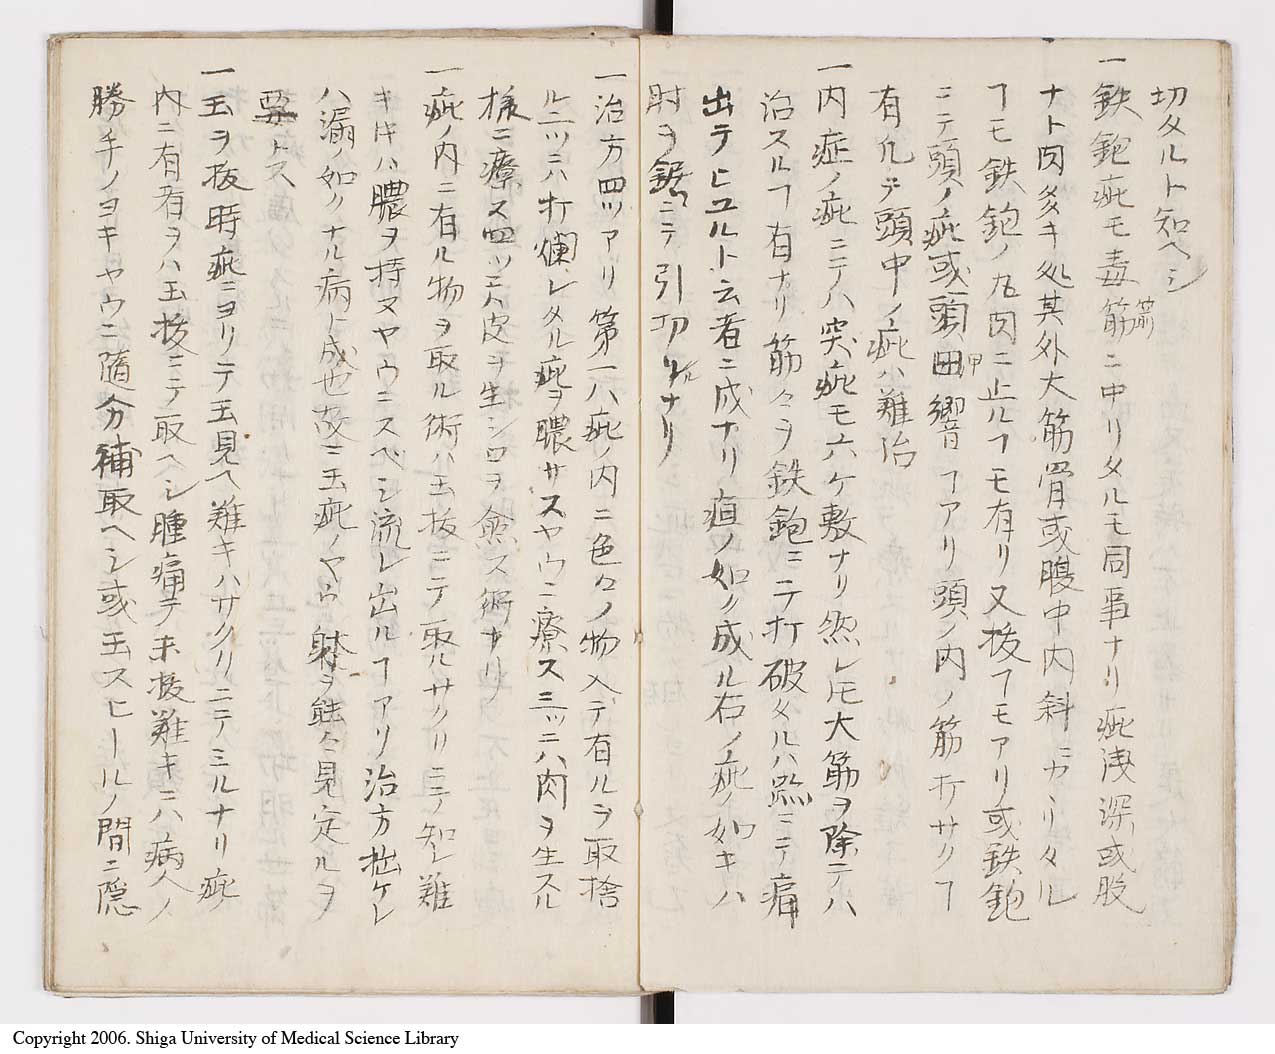 切タルト知ヘシ
一鉄鉋疵モ毒筋ニ中リタルモ同事ナリ疵浅深或股
箭
ナト肉多キ処其外大筋骨或腹中内斜ニカヽリタル
ヿモ鉄鉋ノ丸肉ニ止ルヿモ有リ又抜ヿモアリ或鉄鉋
ニテ頭ノ疵或頭田響ヿアリ頭ノ内ノ筋打サクヿ
甲
有ルテ頭中ノ疵ハ難治
一内症ノ疵ニテハ突疵モ六ケ敷ナリ然レ𪜈大筋ヲ除テハ
治スルヿ有ナリ筋々ヲ鉄鉋ニテ打破タルハ跡ニテ痛
出テヒユルト云者ニ成ナリ疽ノ如ク成ル右ノ疵ノ如キハ
肘ヲ鋸ニテ引切ルナリ
一治方四ツアリ第一ハ疵ノ内ニ色々ノ物入テ有ルヲ取捨
ル二ツニハ打爛レタル疵ヲ膿サスヤウニ療ス三ツニハ肉ヲ生スル
様ニ療ス四ツニハ皮ヲ生シ口ヲ愈ス術ナリ
一疵ノ内ニ有ル物ヲ取ル術ハ玉抜ニテ取ルサクリニテ知レ難
キ𪜈ハ膿ヲ持ヌヤウニスベシ流レ出ルヿアリ治方拙ケレ
ハ漏ノ如クナル病ト成也故ニ玉疵ノヤウ射ヲ能々見定ルヲ
要トス
一玉ヲ抜時疵ニヨリテ玉見ヘ難キハサクリニテミルナリ疵
内ニ有者ヲハ玉抜ニテ取ヘシ腫痛テ未抜難キニハ病人ノ
勝手ノヨキヤウニ随分補取ヘシ或玉スヒールノ間ニ隠